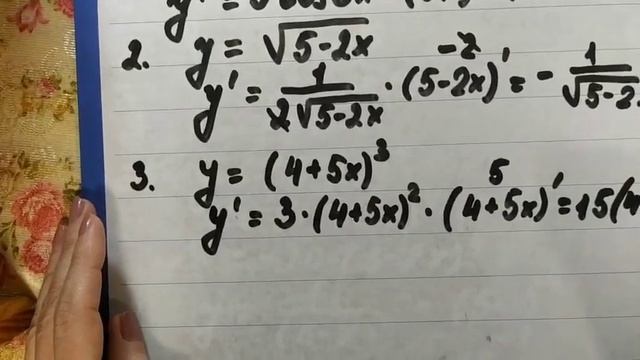 2. y = √(5-2x)
-2
y' = 1/(2√(5-2x)) · (5-2x)' = - 1/√(5-2
3. y = (4+5x)³
5
y' = 3·(4+5x)²·(4+5x)' = 15(4